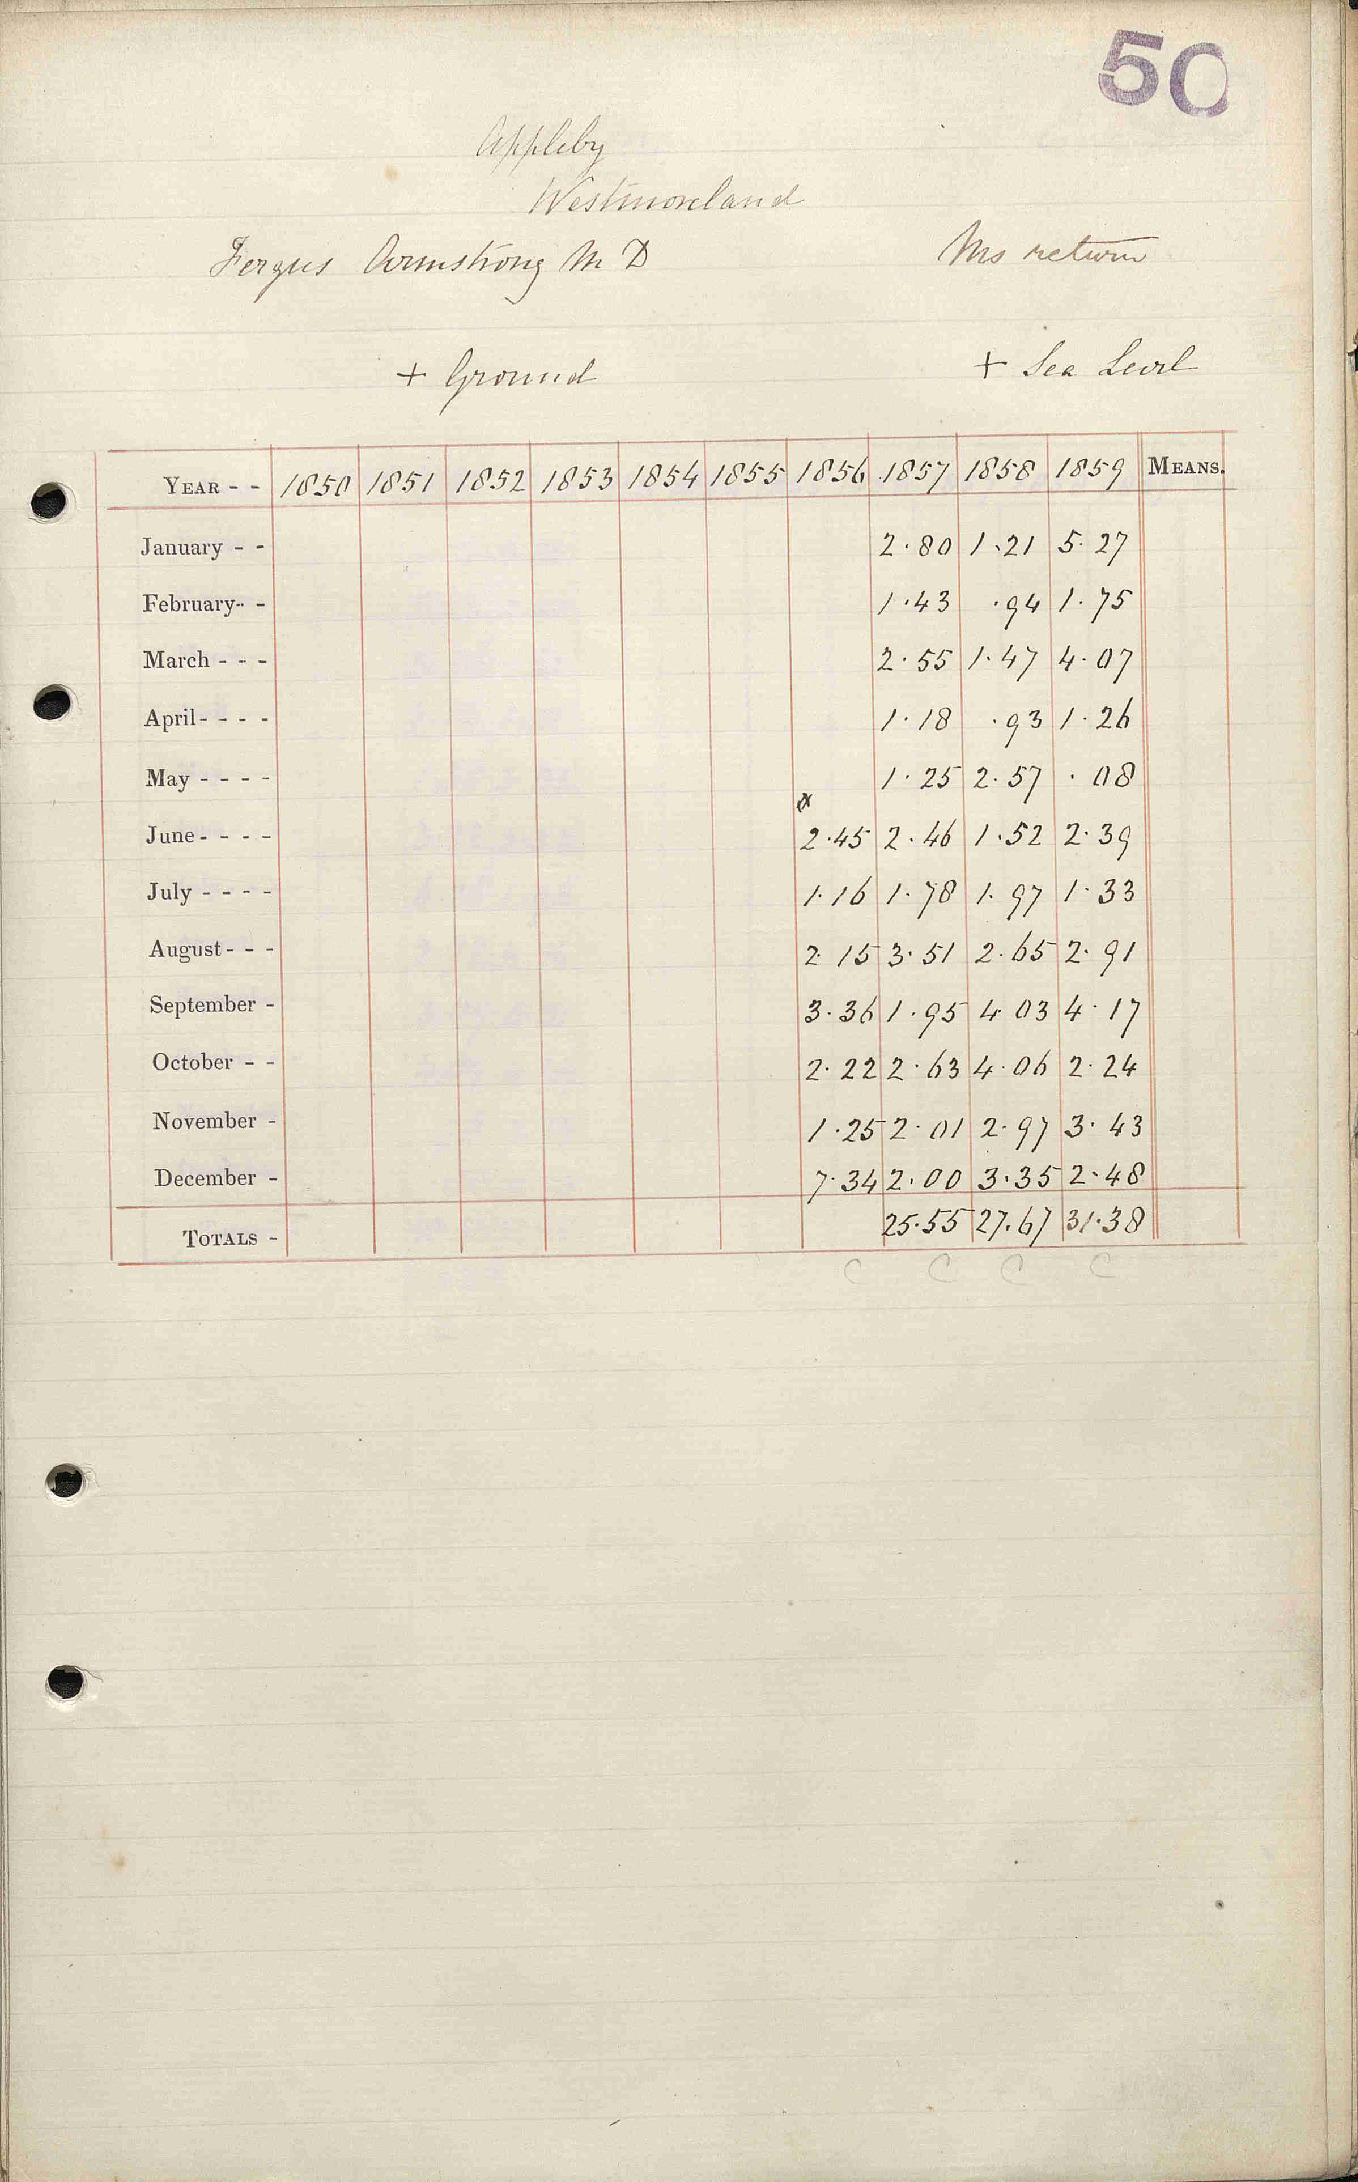 50
Appleby
Westmoreland
Fergus Armstrong M D Ms return
+ Ground + Sea Level
YEAR - - 1850 1851 1852 1853 1854 1855 1856 1857 1858 1859 MEANS.
January - - 2.80 1.21 5.27
February- - 1.43 .94 1.75
March - - - 2.55 1.47 4.07
April- - - - 1.18 .93 1.26
May - - - - 1.25 2.57 .08
x
June- - - - 2.45 2.46 1.52 2.39
July - - - - 1.16 1.78 1.97 1.33
August- - - 2.15 3.51 2.65 2.91
September - 3.36 1.95 4.03 4.17
October - - 2.22 2.63 4.06 2.24
November - 1.25 2.01 2.97 3.43
December - 7.34 2.00 3.35 2.48
TOTALS - 25.55 27.67 31.38
C C C C